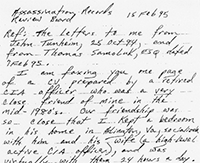 Assassination Records
Review Board
15 Feb 95
Ref: The letters to me from
John Tunheim, 25 Oct 94; and
from Thomas Samoluk, ESQ dated
7 Feb 95.
I am faxing you one page
of a CV prepared by a retired
C.I.A. officer, who was a very
close friend of mine in the
mid-1980's. Our friendship was
so close that I kept a bedroom
in his home in Va, socialized
with him and his wife (a high level
active CIA officer), and was
virtually with them 24 hours a day.